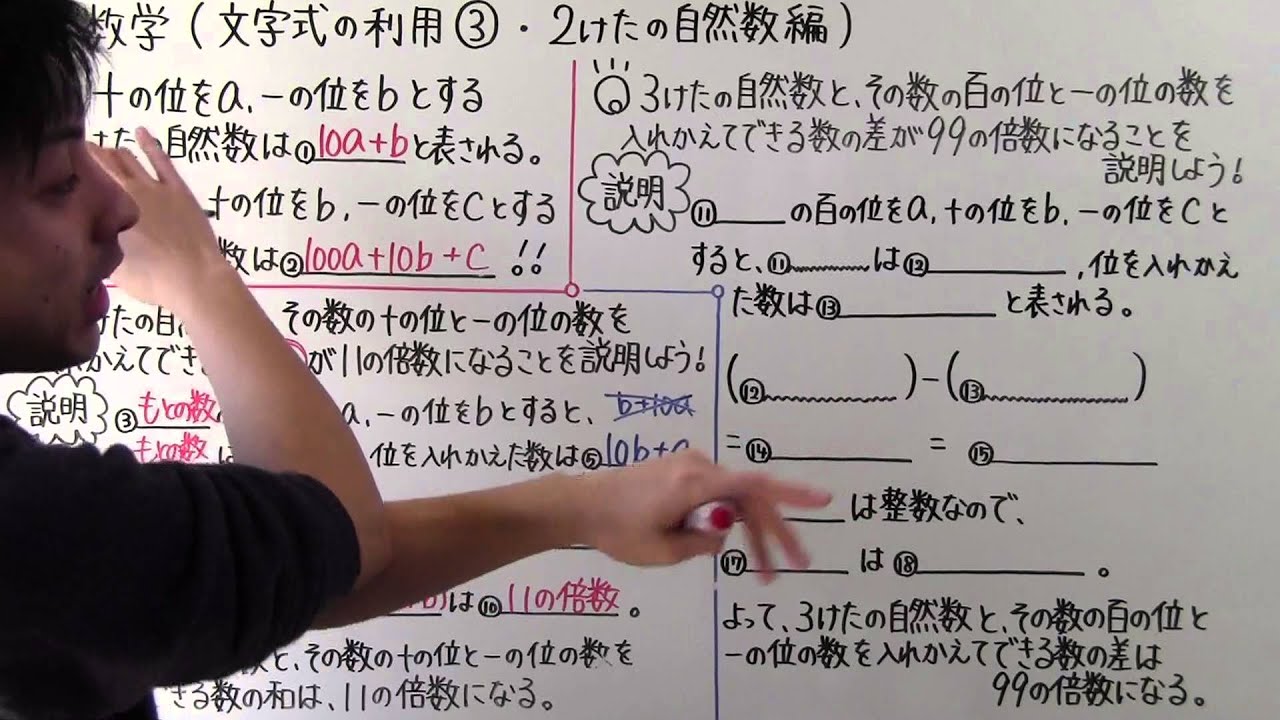 数学(文字式の利用③・2けたの自然数編)
十の位をa,一の位をbとする
けたの自然数は①10a+bと表される。
十の位をb,一の位をCとする
数は②100a+10b+C!!
けたの自然 その数の十の位と一の位の数を
かえてでき が11の倍数になることを説明しよう!
説明
③もとの数 a,一の位をbとすると、b+10a
もとの数は 位を入れかえた数は⑤10b+a
は⑩11の倍数。
と、その数の十の位と一の位の数を
きる数の和は、11の倍数になる。
3けたの自然数と、その数の百の位と一の位の数を
入れかえてできる数の差が99の倍数になることを
説明しよう!
説明
⑪ の百の位をa,十の位をb,一の位をCと
すると、⑪ は⑫ ,位を入れかえ
た数は⑬ と表される。
(⑫ )-(⑬ )
=⑭ =⑮
は整数なので、
⑰ は⑱ 。
よって、3けたの自然数と、その数の百の位と
一の位の数を入れかえてできる数の差は
99の倍数になる。